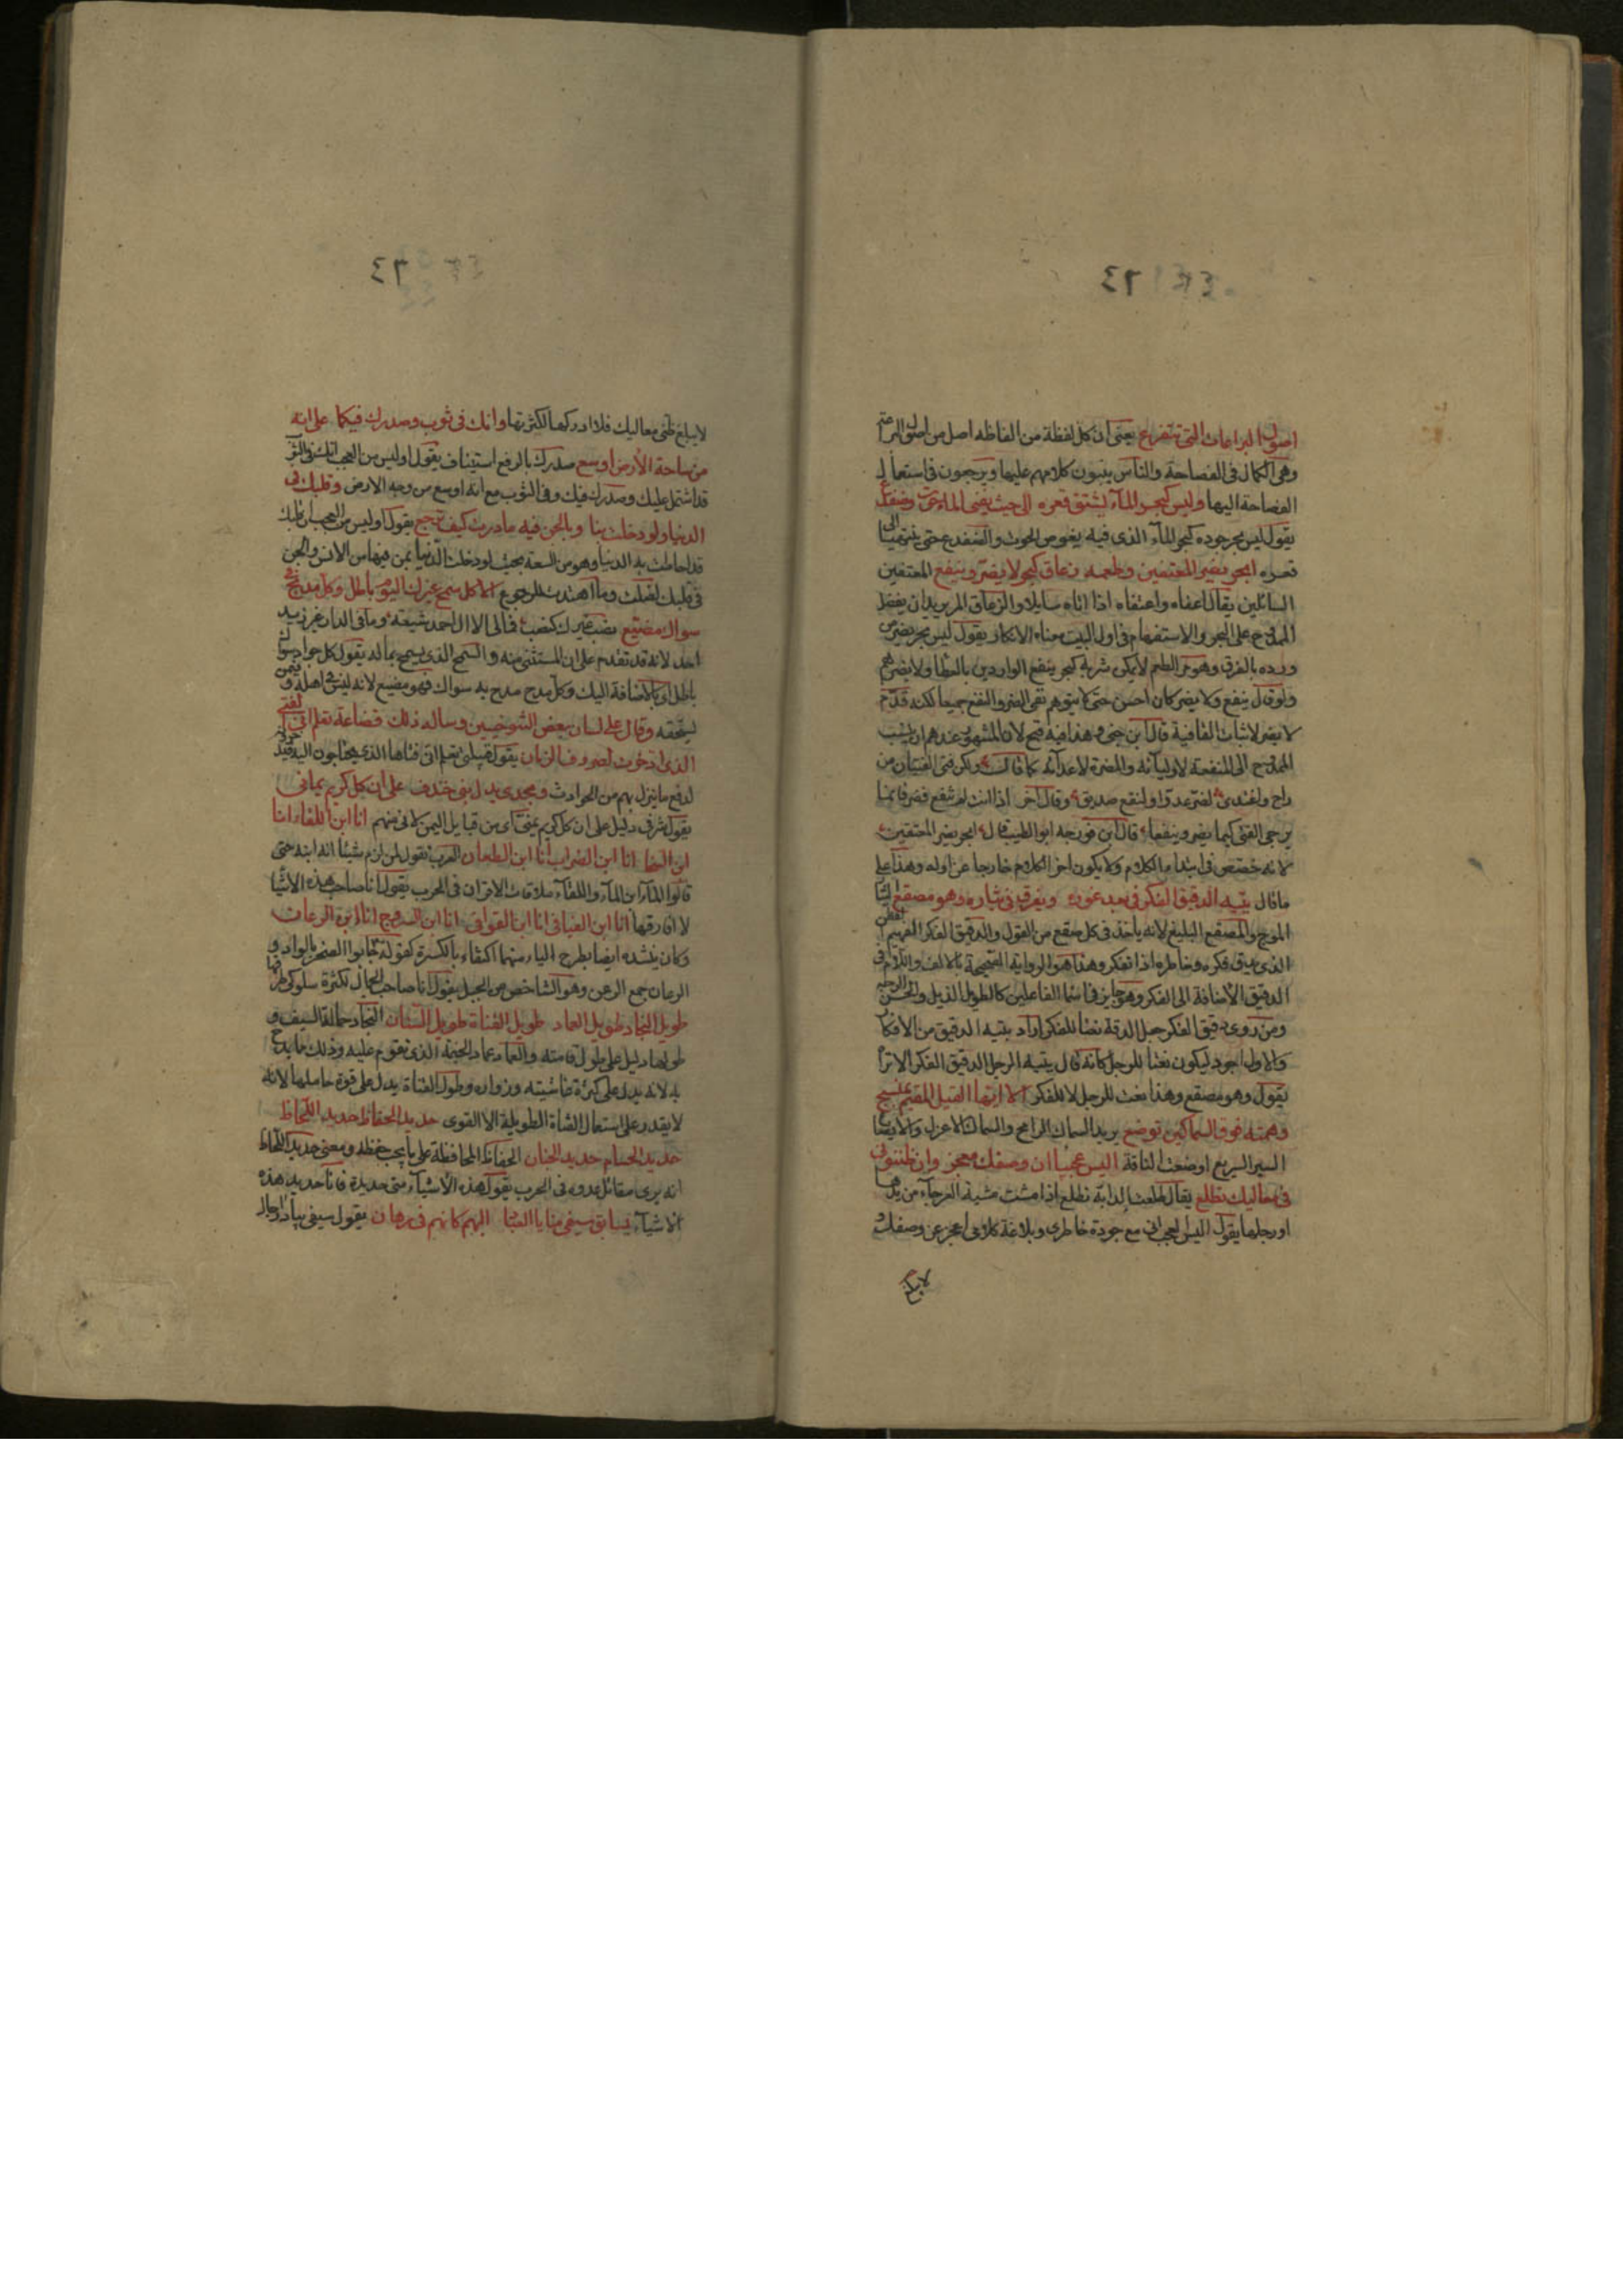 اصول البراعات التي تتفرع يعنى ان كل لفظة من الفاظه اصل من اصول البراعة
وهى الكمال فى الفصاحة والناس يبنون كلامهم عليها ويرجعون فى استعمال
الفصاحة اليها وليس كبحر الماء يشتق قعره الى حيث يفنى الماء حوت وضفدع
يقول ليس بحر جوده كبحر الماء الذى فيه يغوص الحوت والضفدع حتى ينتهيا الى
قعره ابحر يضر المعتفين وطعمه زعاق كبحر لا يضر وينفع المعتفين
السائلين يقال عفاه واعتفاه اذا اتاه سايلا والزعاق المر يريد ان يفضل
الممدوح على البحر والاستفهام فى اول البيت معناه الانكار يقول ليس بحر يضر من
ورده بالغرق وهو مر الطعم لا يمكن شربه كبحر ينفع الواردين بالعطا ولا يضرهم
ولو قال ينفع ولا يضر كان احسن حتى لا يتوهم نفى الضر والنفع جميعا لكنه قدم
لا يضر لاثبات القافية قال ابن جنى وهذا فيه قبح لان المشهور عندهم ان ينسب
الممدوح الى المنفعة لاوليآئه والمضرة لاعدآئه كما قال ولكن فتى الفتيان من
راح واغتدى لضر عدو او لنفع صديق وقال آخر اذا انت لم تنفع فضر فانما
يرجى الفتى كيما يضر وينفعا قال ابن فورجه ابو الطيب قال ابحر يضر المعتفين
لانه خصص فى ابتدا الكلام ولا يكون اخر الكلام خارجا عن اوله وهذا على
ما قال يتيه الدقيق الفكر فى بعد غوره ويغرق فى تياره وهو مصقع التيار
الموج والمصقع البليغ لانه يأخذ فى كل صقع من القول والدقيق الفكر الفهيم الفطن
الذى يدق فكره وخاطره اذا تفكر وهذا هو الرواية الصحيحة بالالف واللام فى
الدقيق الاضافة الى الفكر وهو جايز فى اسما الفاعلين كالطويل الذيل والحسن الوجه
ومن روى دقيق الفكر جعل الدقة نعتا للفكر اراد يتيه الدقيق من الافكار
والاول اجود ليكون نعتا للرجل كانه قال يتيه الرجل الدقيق الفكر الا تراه
يقول وهو مصقع وهذا نعت للرجل لا للفكر الا ايها القيل المقيم بمنبج
وهمته فوق السماكين توضع يريد السماك الرامح والسماك الاعزل والايضاع
السير السريع اوضعت الناقة اليس عجيبا ان وصفك معجز وان ظنونى
فى معاليك تظلع يقال ظلعت الدابة تظلع اذا مشت مشية العرجآء من يدها
او رجلها يقول اليس العجب انى مع جودة خاطرى وبلاغة كلامى اعجز عن وصفك و
لا يبلغ
لا يبلغ ظنى معاليك فلا ادركها لكثرتها وانك فى ثوب وصدرك فيكما على انه
من ساحة الارض اوسع صدرك بالرفع استيناف يقول اوليس من العجب انك فى ثوب
قد اشتمل عليك وصدرك فيك وفى الثوب مع انه اوسع من وجه الارض وقلبك فى
الدنيا ولو دخلت بنا وبالجن فيه ما درت كيف ترجع يقول اوليس من العجب ان قلبك
قد احاطت به الدنيا وهو من السعة بحيث لو دخلت الدنيا بمن فيها من الانس والجن
فى قلبك لضلت وما اهتدت للرجوع الا كل سمح غيرك اليوم باطل وكل مديح فى
سواك مضيع نصب غيرك كنصب فمالى الا ال احمد شيعة وما فى الدار غير زيد
احد لانه قد تقدم على ان المستثنى منه والسمح الذى يسمح بما له يقول كل جواد سواك
باطل اى بالاضافة اليك وكل مدح مدح به سواك فهو مضيع لانه ليس فى اهله وفيمن
يستحقه وقال على لسان بعض التنوخيين وساله ذلك قضاعة تعلم انى الفتى
الذى ادخرت لصروف الزمان يقول قبيلتى تعلم انى فتاها الذى يحتاجون اليه
لدفع ما ينزل بهم من الحوادث ومجدى يدل بنى خندف على ان كل كريم يمانى
يقول شرفى دليل على ان كل كريم يمنى اى من قبايل اليمن لانى منهم انا ابن اللقاء انا
ابن السخا انا ابن الضراب انا ابن الطعان العرب تقول لمن لزم شيئا انه ابنه حتى
قالوا لطآئر الماء ابن المآء واللقآء ملاقات الاقران فى الحرب يقول انا صاحب هذه الاشيا
لا افارقها انا ابن الفيافى انا ابن القوافى انا ابن السروج انا ابن الرعان
وكان ينشده ايضا بطرح الياء منهما اكتفاء بالكسرة كقوله جابوا الصخر بالواد و
الرعان جمع الرعن وهو الشاخص من الجبل يقول انا صاحب الجبال لكثرة سلوكى طرقها
طويل النجاد طويل العماد طويل القناة طويل السنان النجاد حمالة السيف و
طولها دليل على طول قامته والعماد عماد الخيمة الذى تقوم عليه وذلك مما يمدح
به لانه يدل على كثرة غاشيته وزواره وطول القناة يدل على قوة حاملها لانه
لا يقدر على استعمال القناة الطويلة الا القوى حديد الحفاظ حديد اللحاظ
حديد الحسام حديد الجنان الحفاظ المحافظة على ما يجب حفظه ومعنى حديد اللحاظ
انه يرى مقاتل عدوه فى الحرب يقول هذه الاشيآء منى حديدة فانا حديد هذه
الاشيآء يسابق سيفى منايا العباد اليهم كانهم فى رهان يقول سيفى يبادر آجال